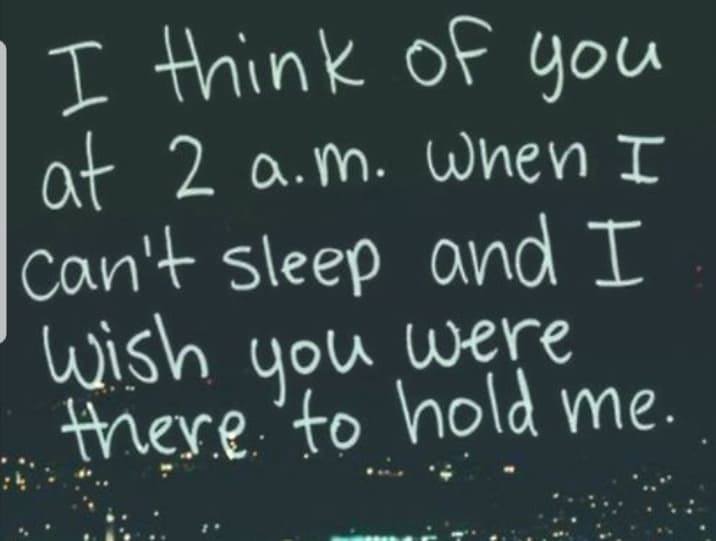 I think of you
at 2 a.m. when I
can't sleep and I
wish you were
there to hold me.